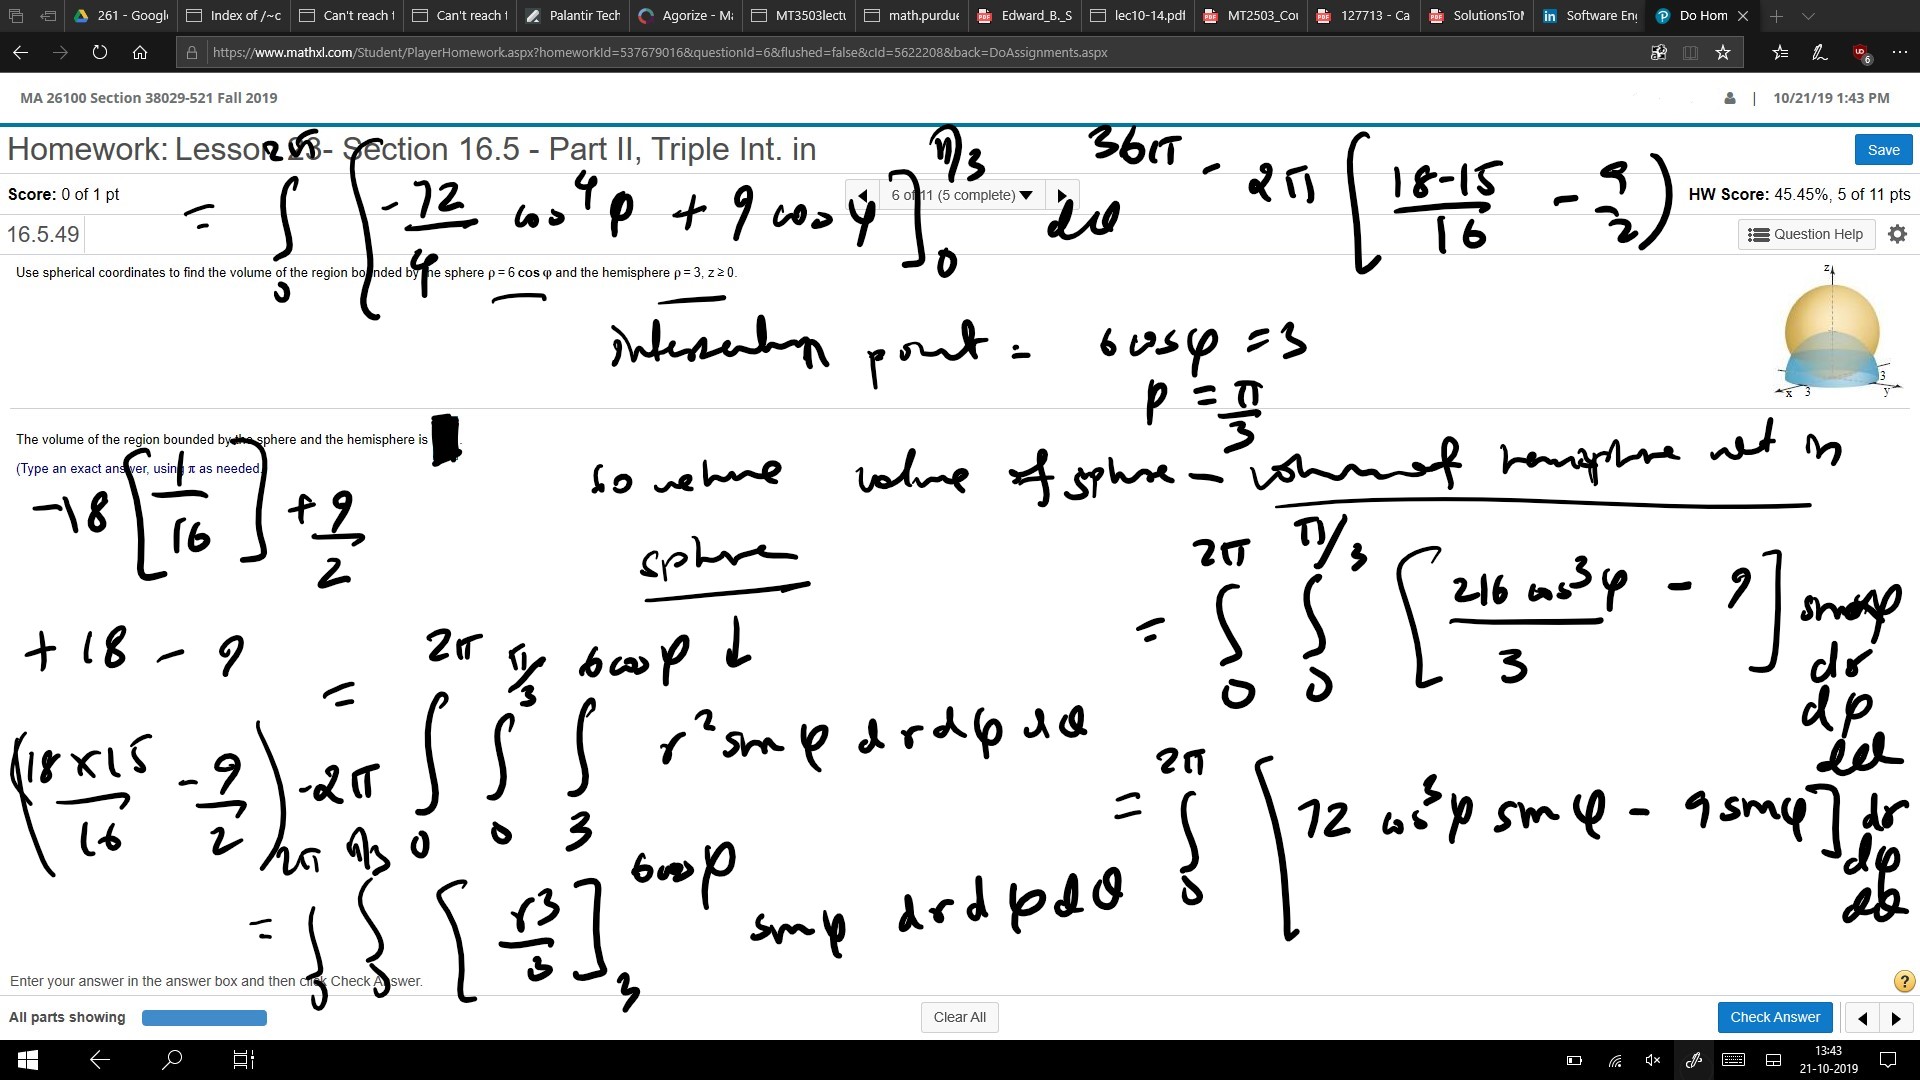 261 - Googl
Index of /~c
Can't reach t
Can't reach t
Palantir Tech
Agorize - Ma
MT3503lectu
math.purdue
Edward_B._S
lec10-14.pdf
MT2503_Cou
127713 - Ca
SolutionsToM
Software Eng
Do Hom
https://www.mathxl.com/Student/PlayerHomework.aspx?homeworkId=537679016&questionId=6&flushed=false&cId=5622208&back=DoAssignments.aspx
6
MA 26100 Section 38029-521 Fall 2019
10/21/19 1:43 PM
Homework: Lesson 23- Section 16.5 - Part II, Triple Int. in
Save
Score: 0 of 1 pt
6 of 11 (5 complete)
HW Score: 45.45%, 5 of 11 pts
16.5.49
Question Help
= ∫₀^2π [-72/4 cos⁴φ + 9 cos φ]₀^π/3 dθ
36π - 2π [18-15/16 - 9/2)
Use spherical coordinates to find the volume of the region bounded by the sphere ρ = 6 cos φ and the hemisphere ρ = 3, z ≥ 0.
z
3
y
x
3
intersection point = 6 cos φ = 3
φ = π/3
The volume of the region bounded by the sphere and the hemisphere is
(Type an exact answer, using π as needed.
so volume of sphere - volume of hemisphere not in
sphere
-18 [1/16] + 9/2
+ 18 - 9
(18×15/16 - 9/2) -2π
= ∫₀^2π ∫₀^π/3 ∫₃^6cosφ r² sin φ dr dφ dθ
= ∫₀^2π ∫₀^π/3 [r3/3]₃^6cosφ sin φ dr dφ dθ
= ∫₀^2π ∫₀^π/3 [216 cos³φ/3 - 9] sin φ dr dφ dθ
= ∫₀^2π [72 cos³φ sin φ - 9 sin φ] dr dφ dθ
Enter your answer in the answer box and then click Check Answer.
?
All parts showing
Clear All
Check Answer
13:43
21-10-2019